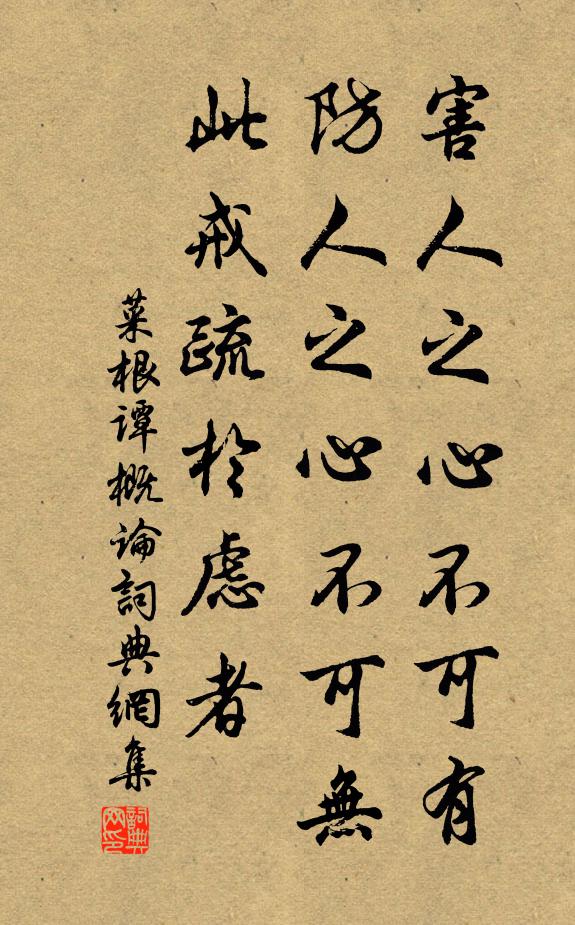 害人之心不可有
防人之心不可無
此戒疏於慮者
菜根谭概论詞典網集
詞典网印